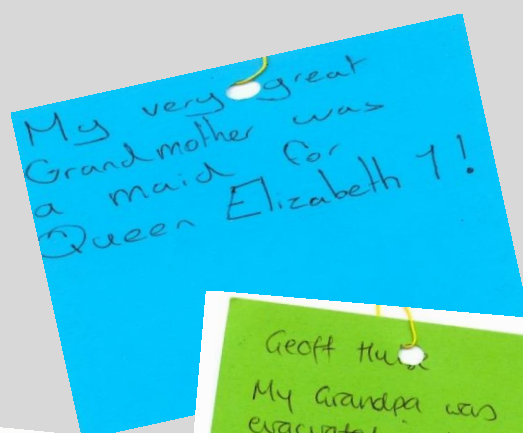 My very great
Grandmother was
a maid for
Queen Elizabeth 1!
Geoff
My Grandpa was
evacuated